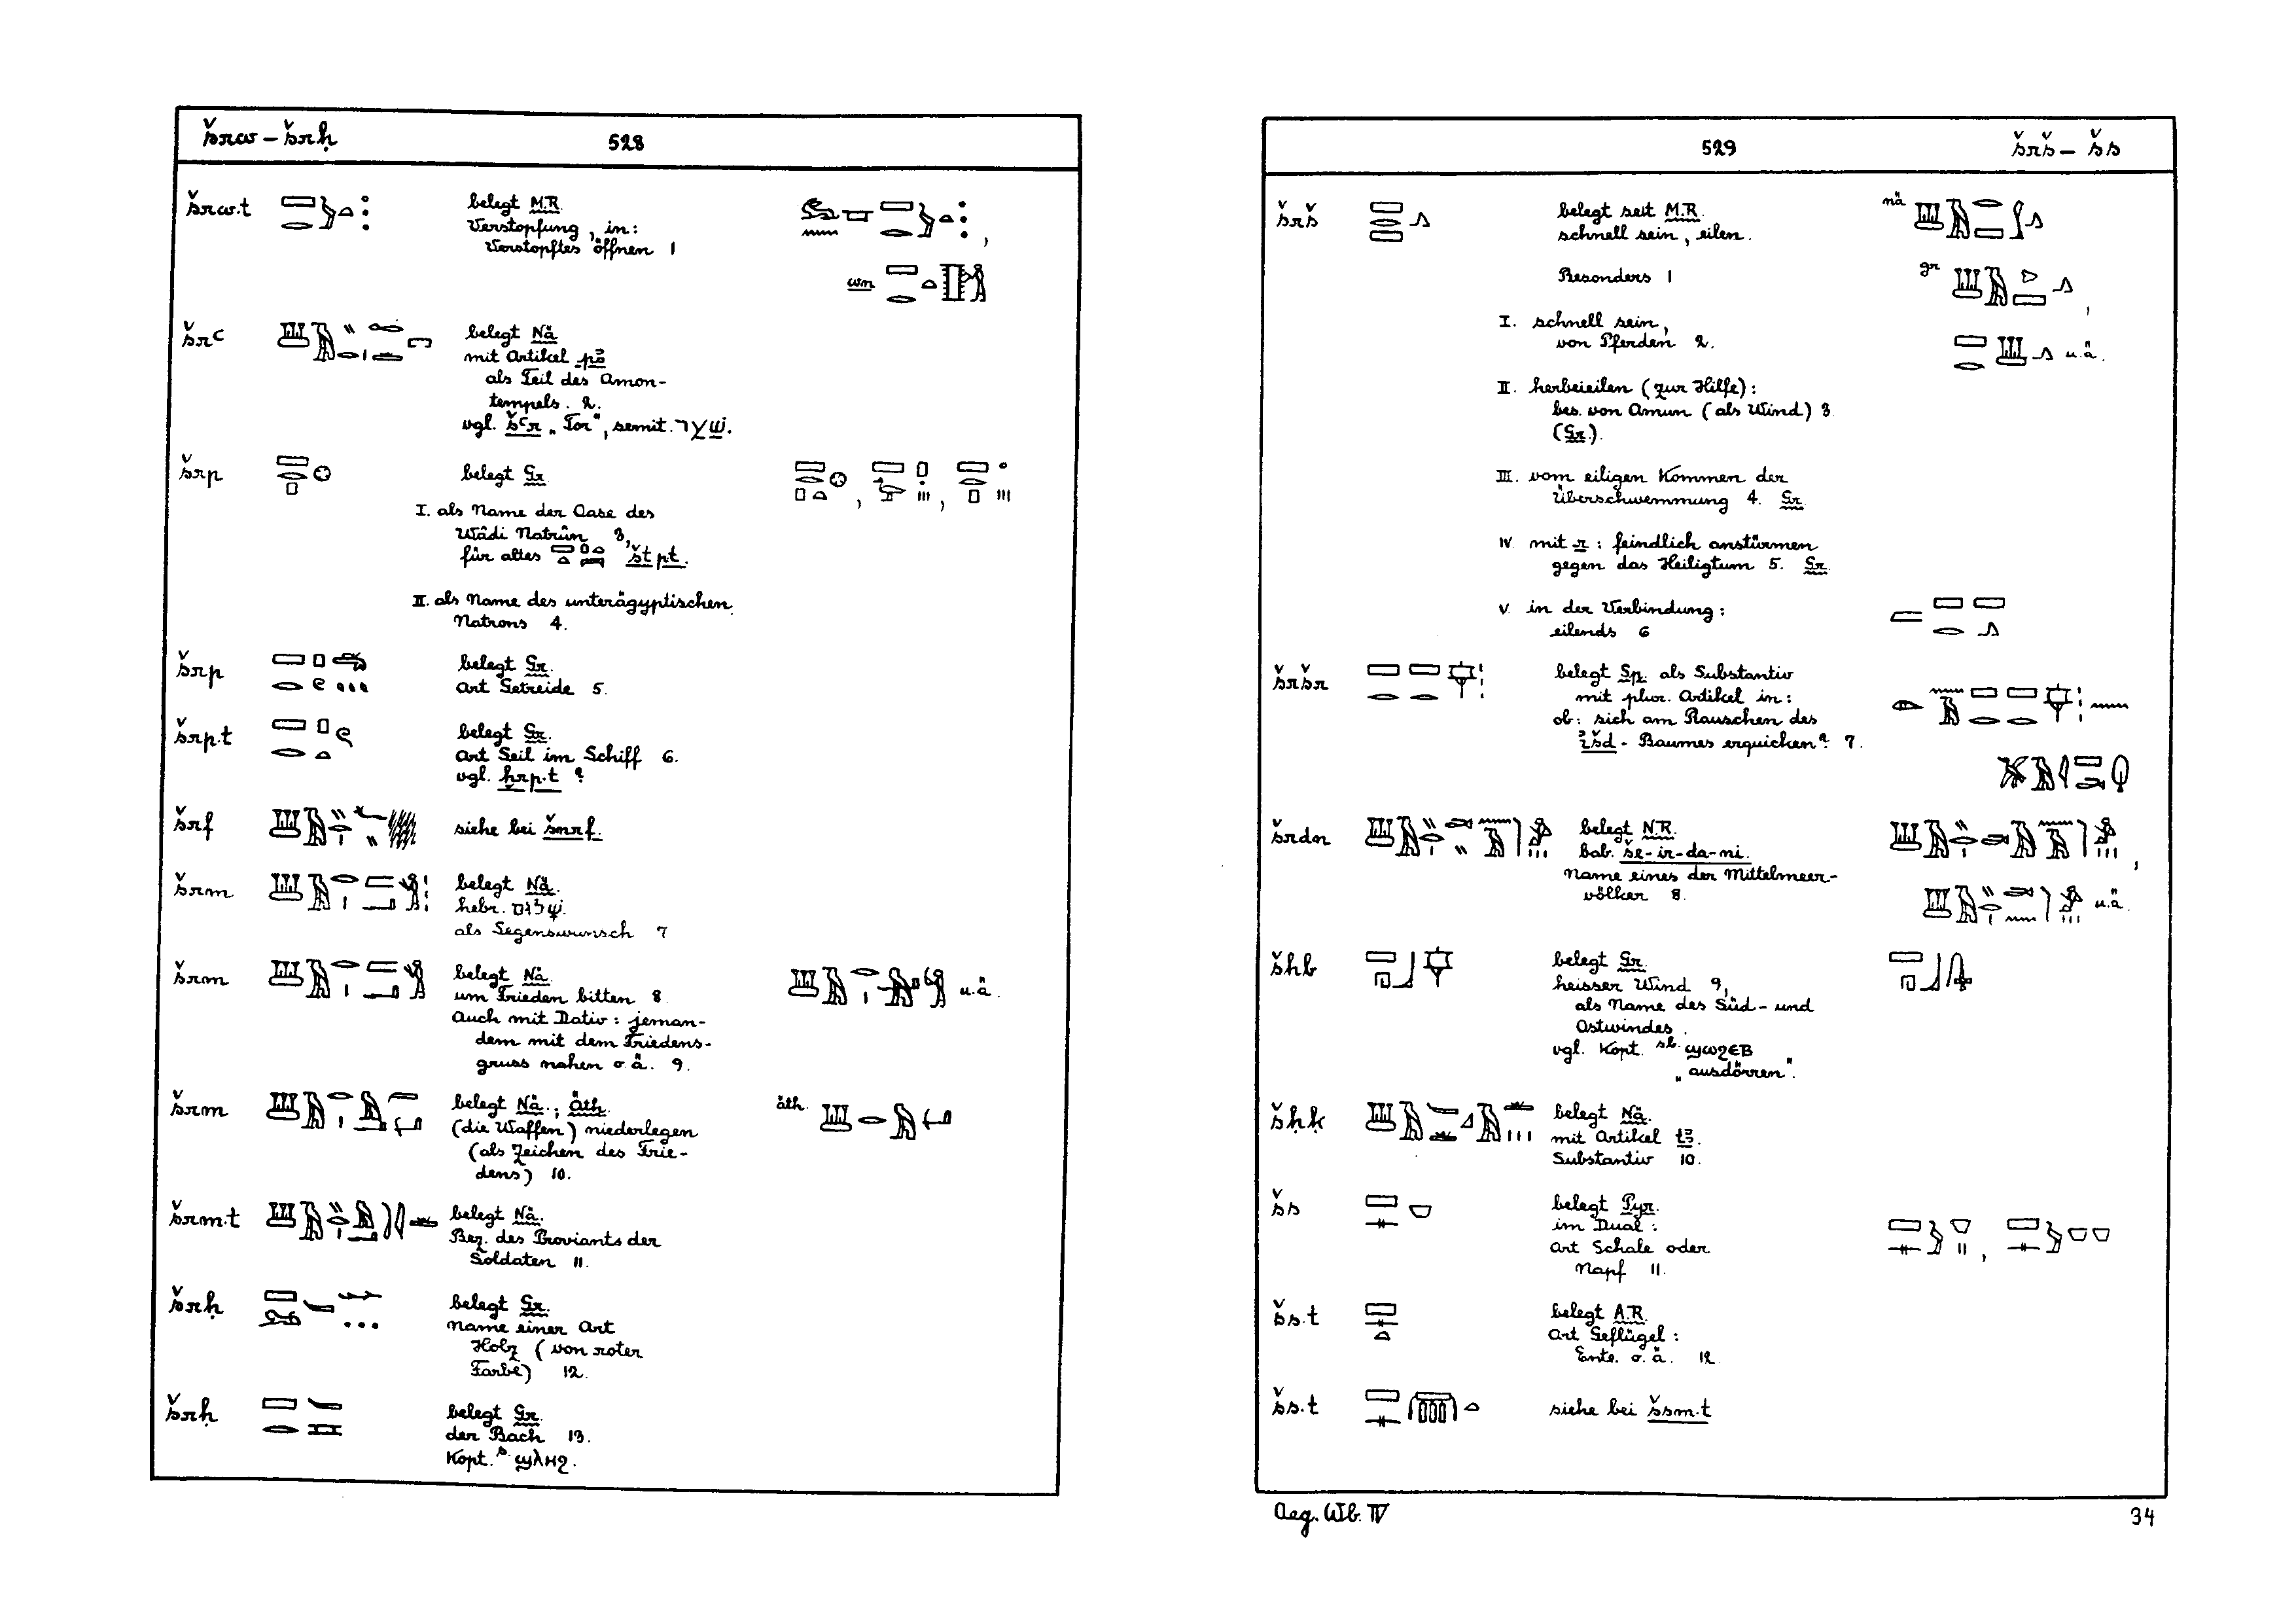 šrw – šrḥ 528
šrw.t belegt M.R.
Verstopfung, in:
Verstopftes öffnen 1
wn
šrꜥ belegt Nä
mit Artikel pꜣ
als Teil des Amon-
tempels. 2.
vgl. šꜥr „Tor“, semit. שׁער.
šrp belegt Gr.
I. als Name der Oase des
Wâdi Natrûn 3,
für altes štpt.
II. als Name des unterägyptischen
Natrons 4.
šrp belegt Gr.
Art Getreide 5.
šrp.t belegt Gr.
Art Seil im Schiff 6.
vgl. ẖrp.t ?
šrf siehe bei šnrf.
šrm belegt Nä.
hebr. שׁלום.
als Segenswunsch 7
šrm belegt Nä.
um Frieden bitten 8. u.ä.
Auch mit Dativ: jeman-
dem mit dem Friedens-
gruss nahen o.ä. 9.
šrm belegt Nä.; Äth. äth.
(die Waffen) niederlegen
(als Zeichen des Frie-
dens) 10.
šrm.t belegt Nä.
Bez. des Proviants der
Soldaten 11.
šrḥ belegt Gr.
Name einer Art
Holz (von roter
Farbe) 12.
šrḥ belegt Gr.
der Bach 13.
Kopt. s. ϣλⲏϩ.
529 šrš – šs
šrš belegt seit M.R. nä
schnell sein, eilen.
Besonders 1 gr
I. schnell sein,
von Pferden 2. u.ä.
II. herbeieilen (zur Hilfe):
bes. von Amun (als Wind) 3
(Gr.).
III. vom eiligen Kommen der
Überschwemmung 4. Gr.
IV. mit r: feindlich anstürmen
gegen das Heiligtum 5. Gr.
V. in der Verbindung:
eilends 6
šršr belegt Sp. als Substantiv
mit plur. Artikel in:
ob: sich am Rauschen des
išd-Baumes erquicken? 7.
šrdn belegt N.R.
bab. še-ir-da-ni.
Name eines der Mittelmeer-
völker 8. u.ä.
šhb belegt Gr.
heisser Wind 9,
als Name des Süd- und
Ostwindes.
vgl. Kopt. sb. ϣⲱϩⲉⲃ
„ausdörren“.
šḥḳ belegt Nä.
mit Artikel tꜣ.
Substantiv 10.
šs belegt Pyr.
im Dual:
Art Schale oder
Napf 11.
šs.t belegt A.R.
Art Geflügel:
Ente. o.ä. 12.
šs.t siehe bei šsm.t
Aeg. Wb. IV 34